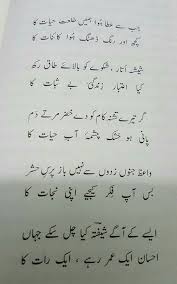 جب سے عطا ہوا ہمیں خلعت حیات کا
کچھ اور رنگ ڈھنگ ہوا کائنات کا
شیشہ اتار، شکوے کو بالائے طاق رکھ
کیا اعتبار زندگیٔ بے ثبات کا
گر تیرے تشنہ کام کو دے خضر مرتے دم
پانی ہو خشک چشمۂ آب حیات کا
واعظ جنوں زدوں سے نہیں باز پرسِ حشر
بس آپ فکر کیجیے اپنی نجات کا
ایسے کے آگے شیفتہ کیا چل سکے جہاں
احسان ایک عمر رہے ، ایک رات کا